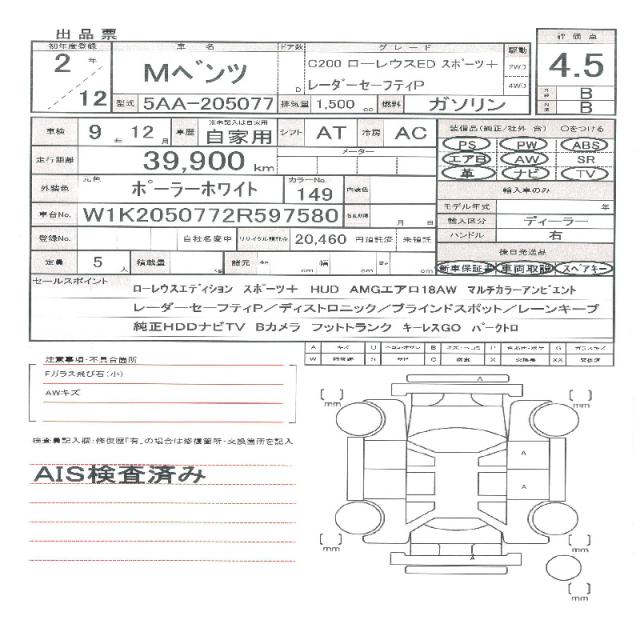 出品票
初年度登録 車名 ドア数 グレード 駆動 評価点
2年 12 Mベンツ D C200 ローレウスED スポーツ＋ 2WD 4.5
レーダーセーフティP 4WD
型式 5AA-205077 排気量 1,500 cc 燃料 ガソリン B
B
車検 9年 12月 車歴 自家用 シフト AT 冷房 AC
装備品(純正/社外 含) ○をつける
PS PW ABS
エアB AW SR
革 ナビ TV
走行距離 39,900 km メーター
輸入車のみ
外装色 元色 ポーラーホワイト カラーNo. 149 内装色
モデル年式 年
車台No. W1K2050772R597580 月 日
輸入区分 ディーラー
登録No. 自社名変中 リサイクル預託金 20,460 円預託済 未預託
ハンドル 右
後日発送品
定員 5人 積載量 kg 諸元 cm 幅 cm cm
新車保証書 車両取説 スペアキー
セールスポイント
ローレウスエディション スポーツ＋ HUD AMGエアロ18AW マルチカラーアンビエント
レーダーセーフティP／ディストロニック／ブラインドスポット／レーンキープ
純正HDDナビTV Bカメラ フットトランク キーレスGO パークトロ
注意事項・不具合箇所
Fガラス飛び石(小)
AWキズ
検査員記入欄・修復歴「有」の場合は修復箇所・交換箇所を記入
AIS検査済み
A
mm mm
A
A
mm mm
A
mm